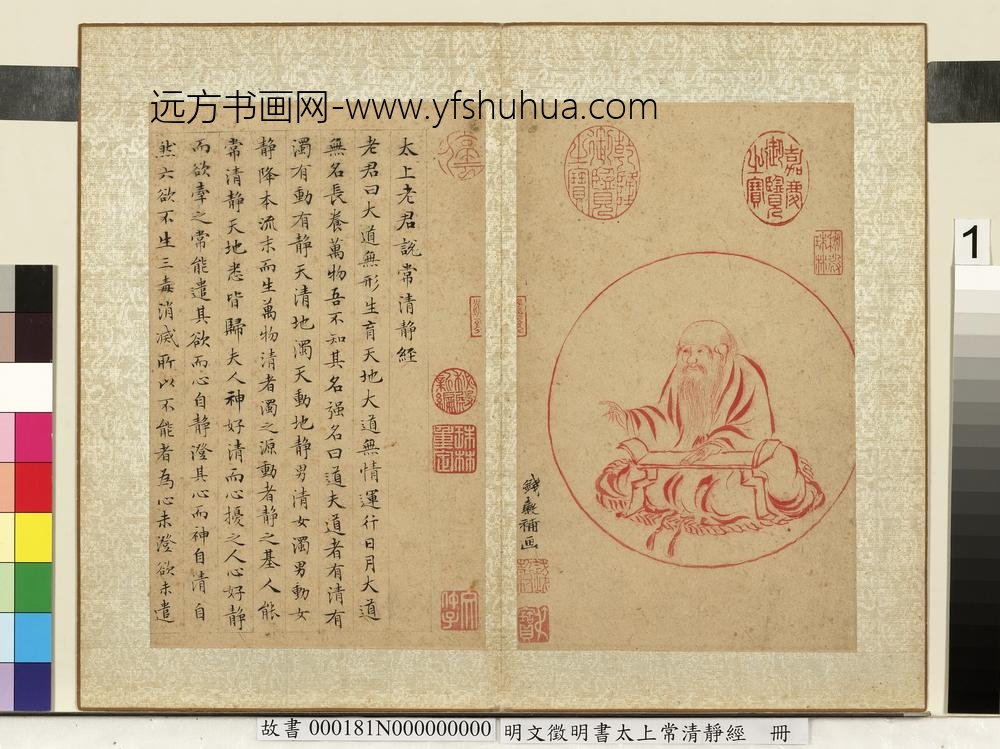 远方书画网-www.yfshuhua.com
嘉慶御覽之寶
乾隆御覽之寶
秘殿珠林
錢穀補画
太上老君説常清静經
老君曰大道無形生育天地大道無情運行日月大道
無名長養萬物吾不知其名强名曰道夫道者有清有
濁有動有静天清地濁天動地静男清女濁男動女
静降本流末而生萬物清者濁之源動者静之基人能
常清静天地悉皆歸夫人神好清而心擾之人心好静
而欲牽之常能遣其欲而心自静澄其心而神自清自
然六欲不生三毒消滅所以不能者為心未澄欲未遣
秘殿新編
珠林重定
1
故書 000181N000000000
明文徵明書太上常清靜經 冊